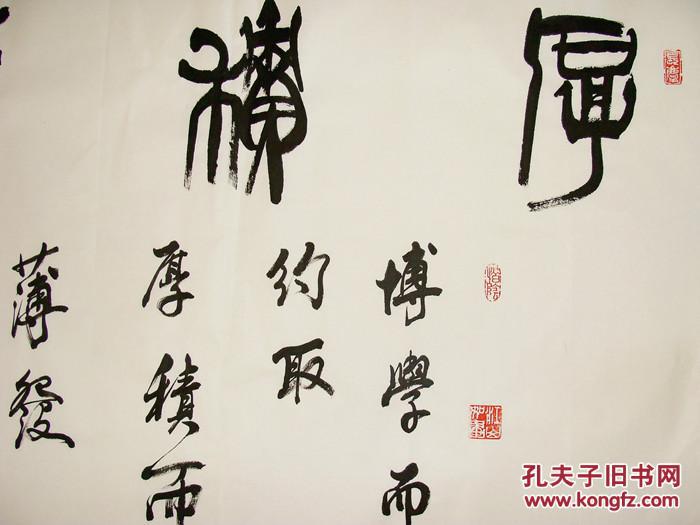 厚積
博學而
約取
厚積而
薄發
孔夫子旧书网
www.kongfz.com